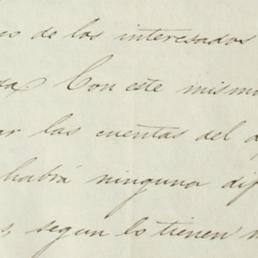 de los interesados
Con este mismo
las cuentas del
habrá ninguna
segun lo tienen